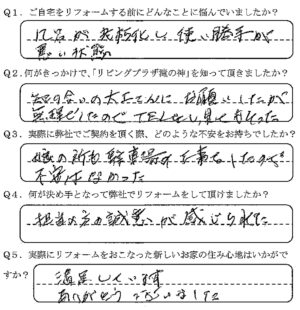 Q1．ご自宅をリフォームする前にどんなことに悩んでいましたか？
風呂が老朽化し使い勝手が
悪い状態
Q2．何がきっかけで、「リビングプラザ滝の神」を知って頂きましたか？
知り合いの大工さんにお願いしたが
無理でしたのでTELをし見てもらった
Q3．実際に弊社でご契約を頂く際、どのような不安をお持ちでしたか？
他の所も工事をしたので
不安はなかった
Q4．何が決め手となって弊社でリフォームをして頂けましたか？
担当の方の誠意が感じられた
Q5．実際にリフォームをおこなった新しいお家の住み心地はいかがで
すか？
満足しています
ありがとうございました